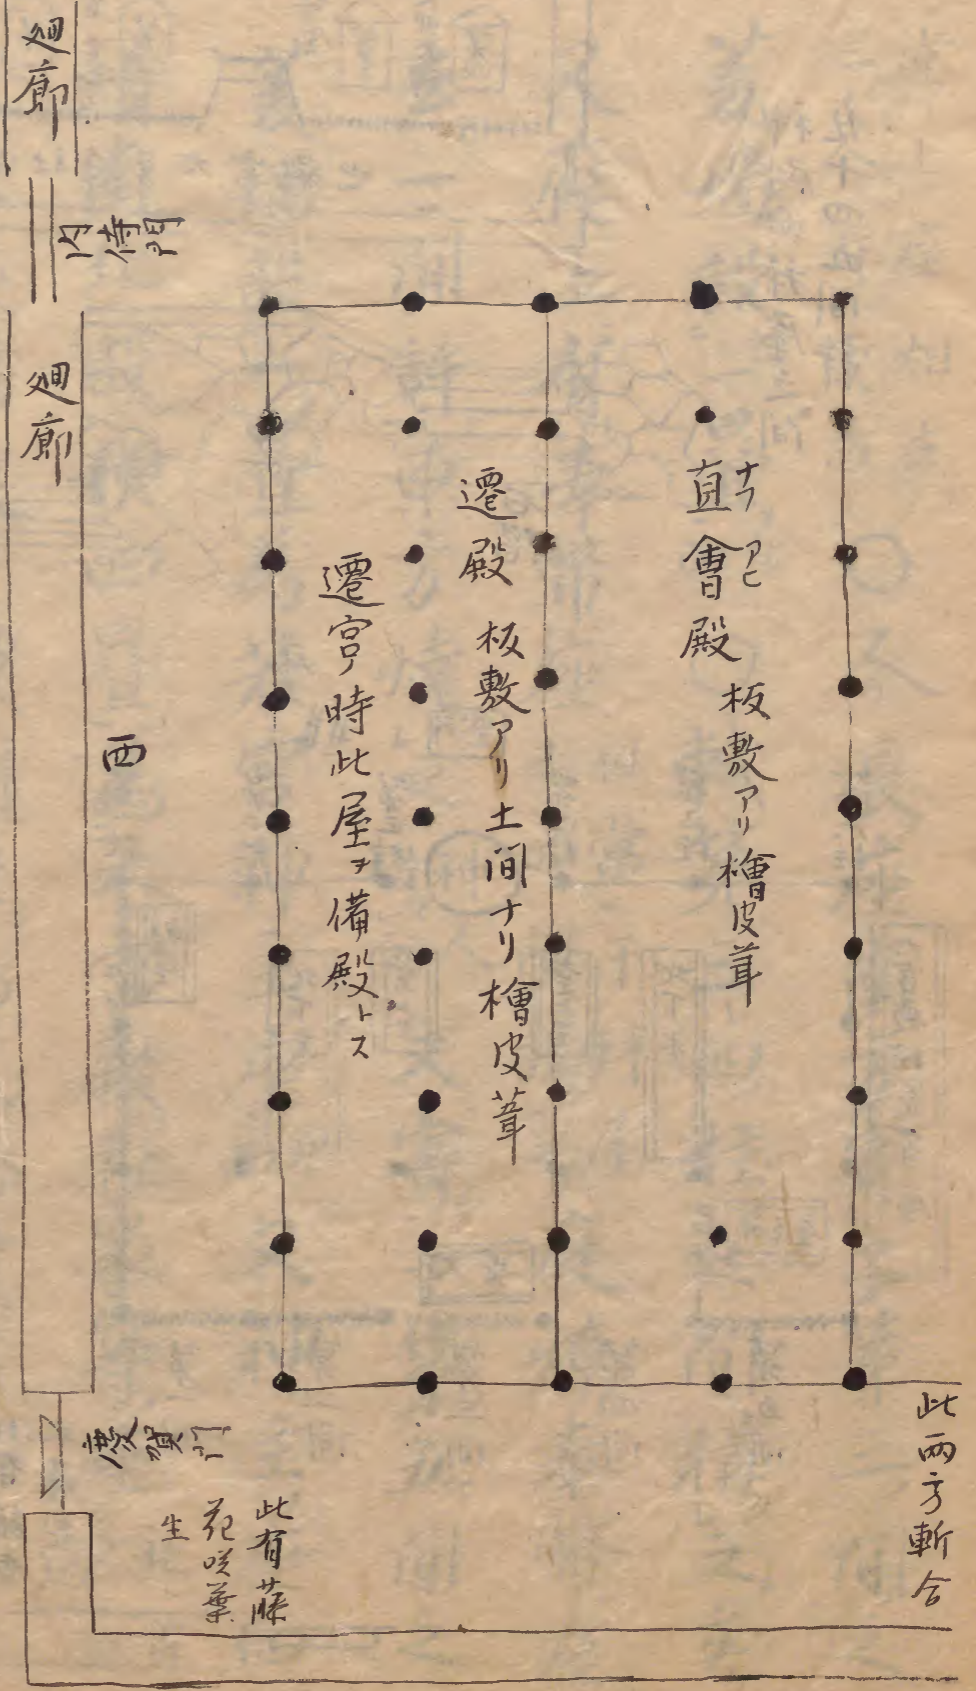 直會殿 板敷アリ檜皮葺
ナフアヒ
遷殿 板敷アリ土間ナリ檜皮葺
遷宮ノ時此屋ヲ備殿トス
西
廻廊
内侍門
廻廊
慶賀門
此両方軒合
此有藤
花咲葉
生